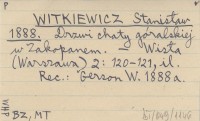 P
WITKIEWICZ Stanisław
1888. Drzwi chaty góralskiej
w Zakopanem. — Wisła
(Warszawa) 2: 120-121, il.
Rec.: Gerson W. 1888a.
BZ, MT